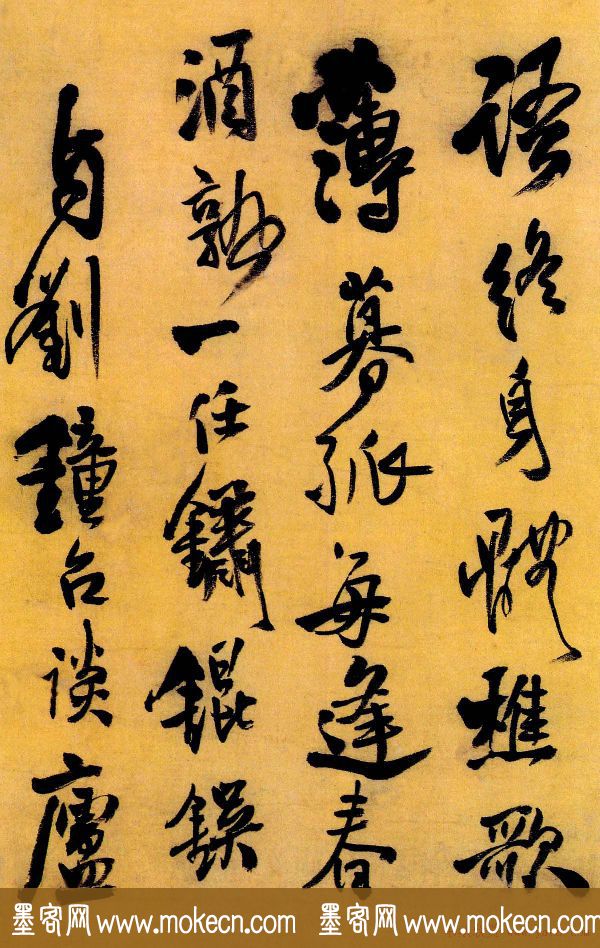 語終身樵歌
薄暮孤每逢春
酒熟一任鏽錕鋘
劉台談廬
墨客网 www.mokecn.com 墨客网 www.mokecn.com